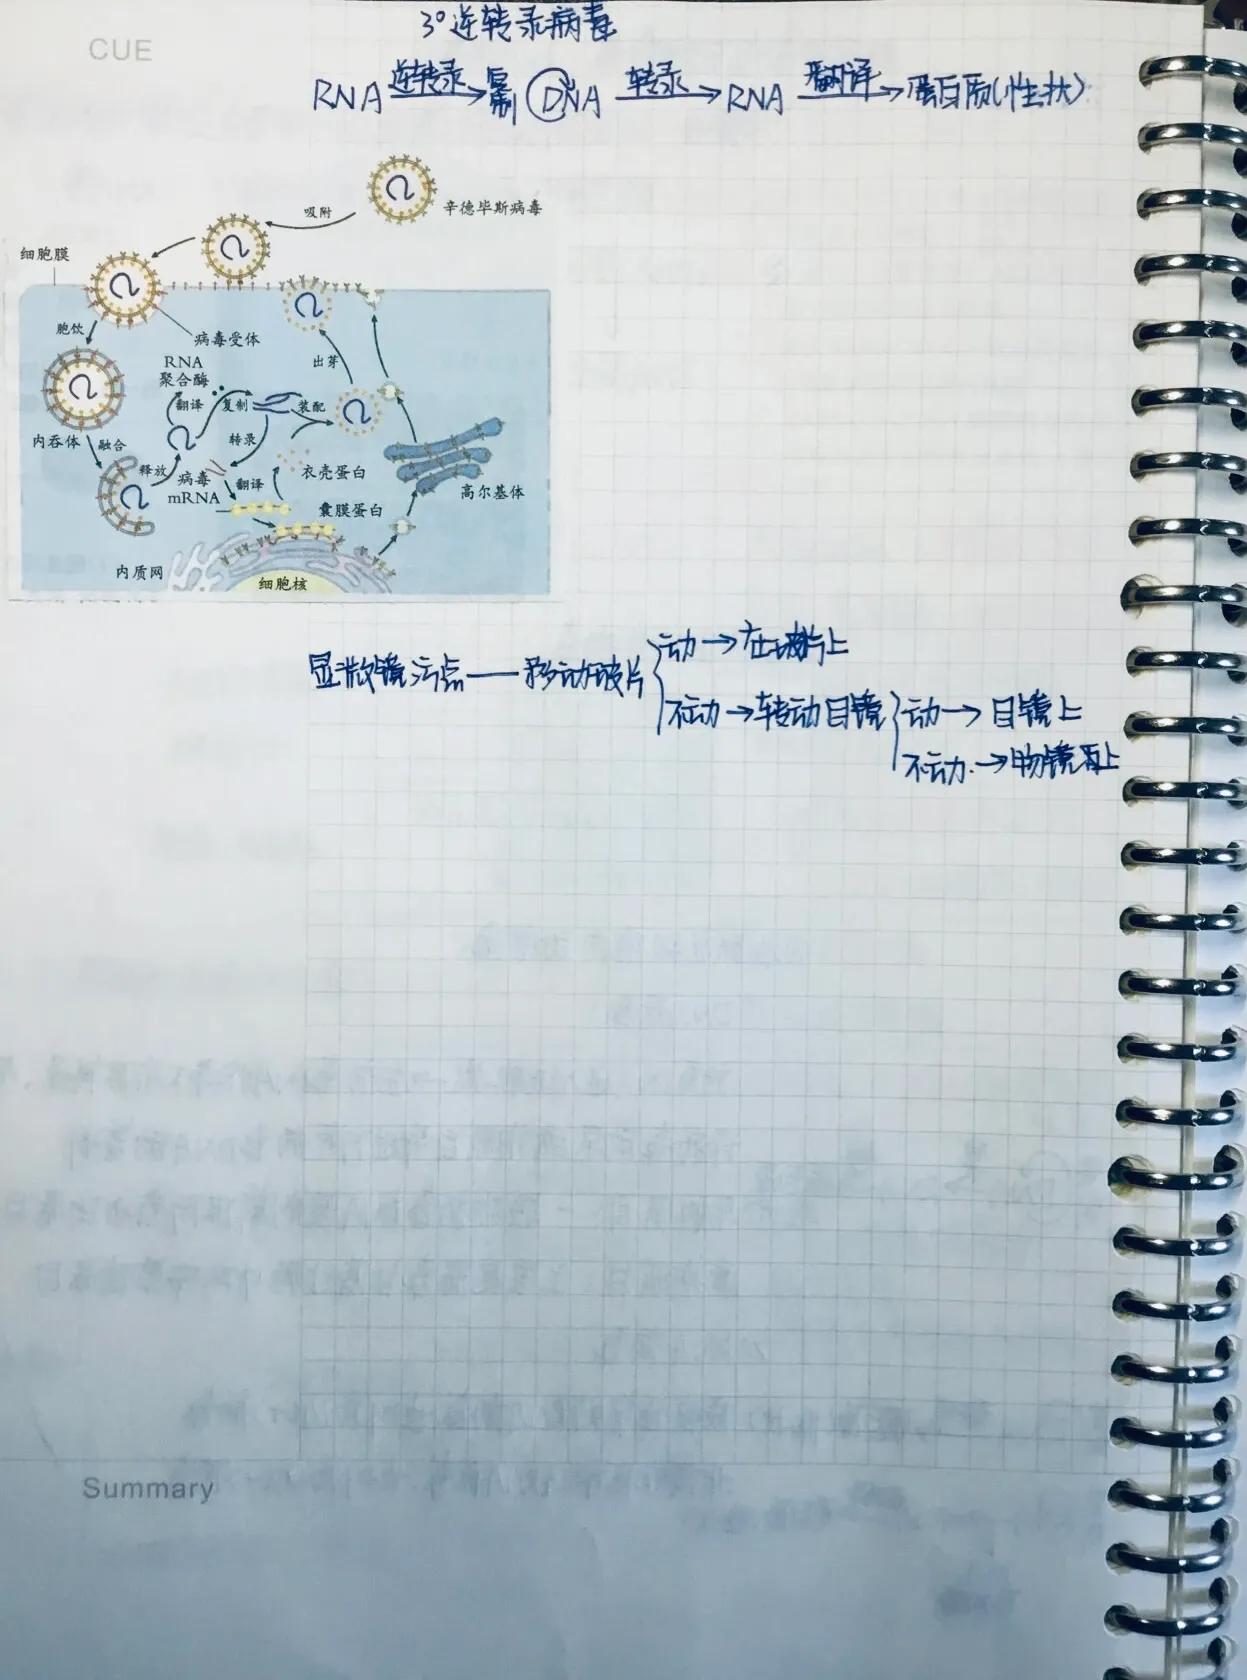 CUE
3° 逆转录病毒
RNA 逆转录 复制 DNA 转录 RNA 翻译 蛋白质(性状)
吸附
辛德毕斯病毒
细胞膜
胞饮
病毒受体
RNA
聚合酶
出芽
翻译
复制
装配
内吞体
融合
转录
释放
病毒
mRNA
翻译
衣壳蛋白
高尔基体
囊膜蛋白
内质网
细胞核
动→在玻片上
显微镜污点——移动玻片
不动→转动目镜
动→目镜上
不动→物镜上
Summary